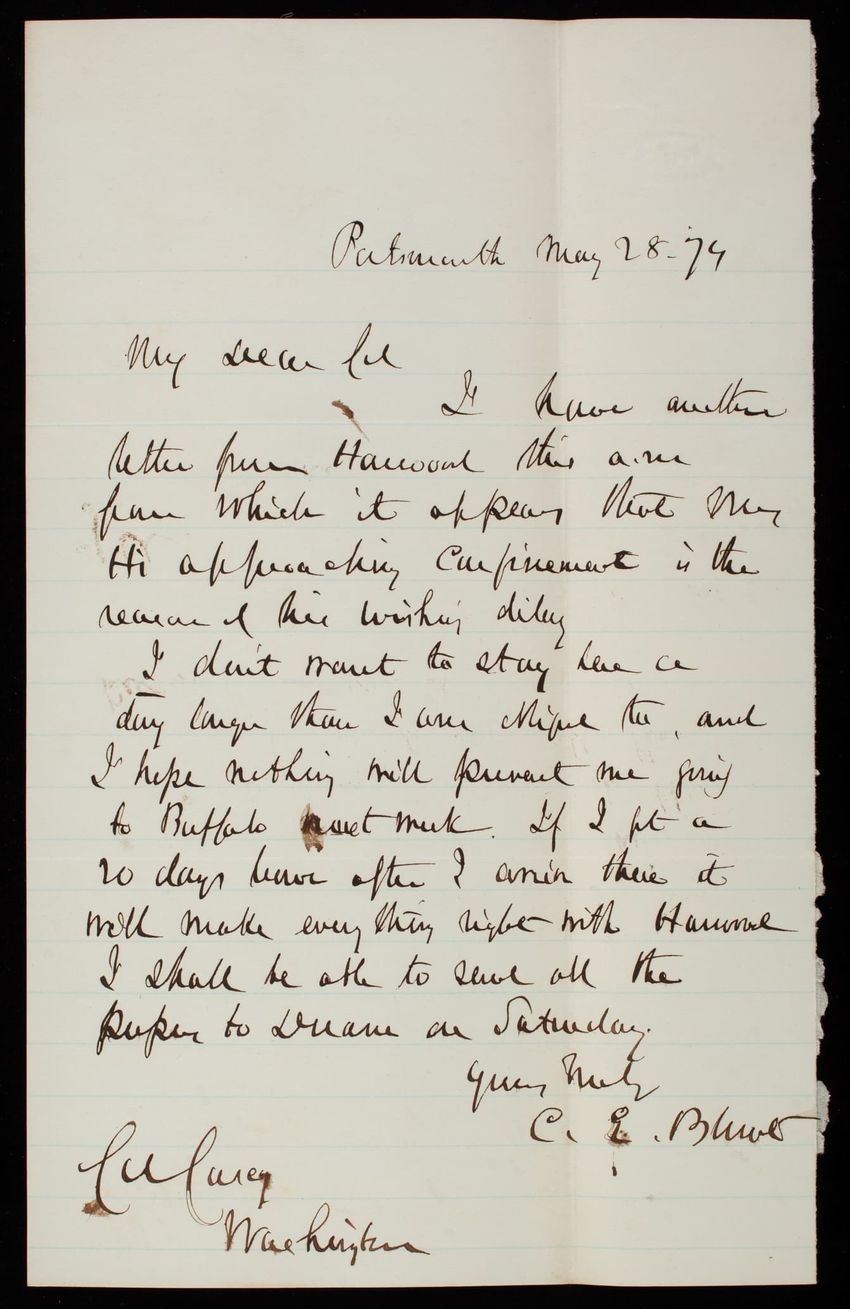 Portsmouth May 28-'74
My Dear Col
I have another
letter from Harwood this a.m
from which it appears that Mrs
H's approaching confinement is the
reason of his wishing delay
I don't want to stay here a
day longer than I am obliged to, and
I hope nothing will prevent me going
to Buffalo next week. If I get a
20 days leave after I arrive there it
will make everything right with Harwood
I shall be able to send all the
papers to Duane on Saturday.
Yours truly
C. E. Blunt
Col Casey
Washington